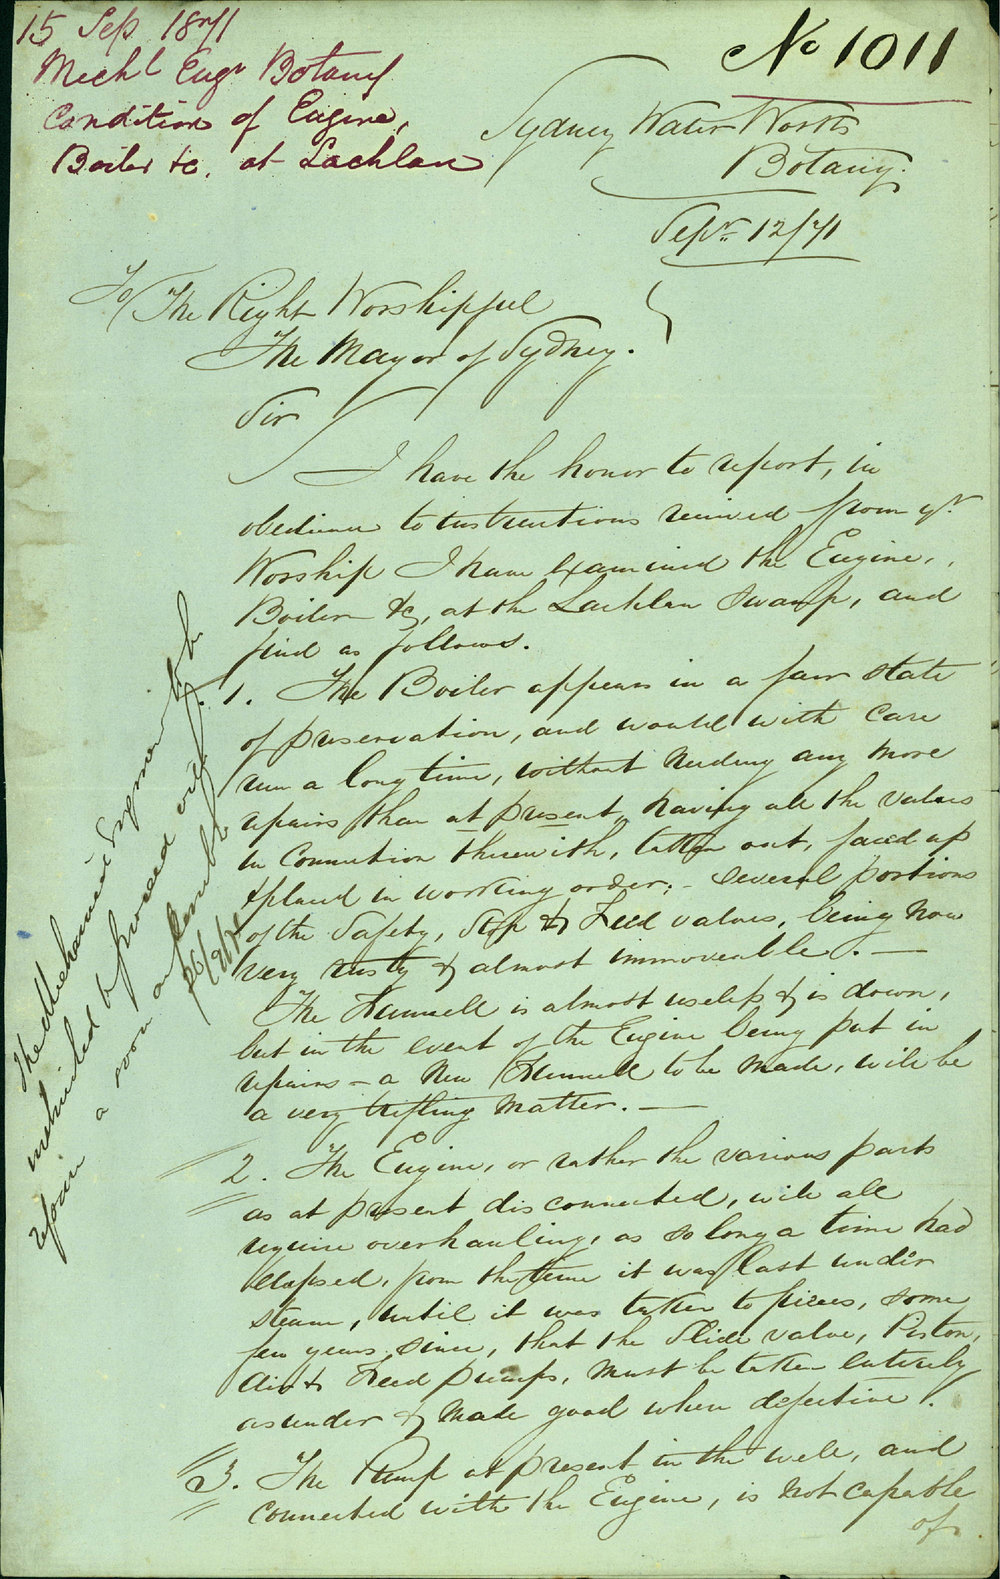 15 Sep 1871
Mechl Engr Botany
Condition of Engine,
Boiler &c. at Lachlan
No 1011
Sydney Water Works
Botany.
Sepr. 12/71
To The Right Worshipful
The Mayor of Sydney.
Sir
I have the honor to report, in
obedience to instructions received from yr.
Worship I have examined the Engine,
Boiler &c, at the Lachlan Swamp, and
find as follows.
1. The Boiler appears in a fair state
of preservation, and would with care
run a long time, without needing any more
repairs than at present, having all the valves
in connection therewith, taken out, faced up
& placed in working order; - several portions
of the Safety, Stop & Feed valves, being now
very rusty & almost immoveable. —
The Funnell is almost useless & is down,
but in the event of the Engine being put in
repairs - a New Funnell to be made, will be
a very trifling matter. —
2. The Engine, or rather the various parts
as at present disconnected, will all
require overhauling, as so long a time had
elapsed, from the time it was last under
steam, until it was taken to pieces, some
few years since, that the Slide valve, Piston,
Air & Feed pumps, must be taken entirely
asunder & made good when defective.
3. The Pump at present in the well, and
connected with the Engine, is not capable
of
The Mechanical Engineer to be
instructed to proceed with
repair as soon as possible